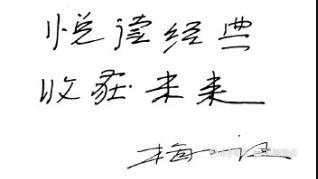 悦读经典
收获未来
梅